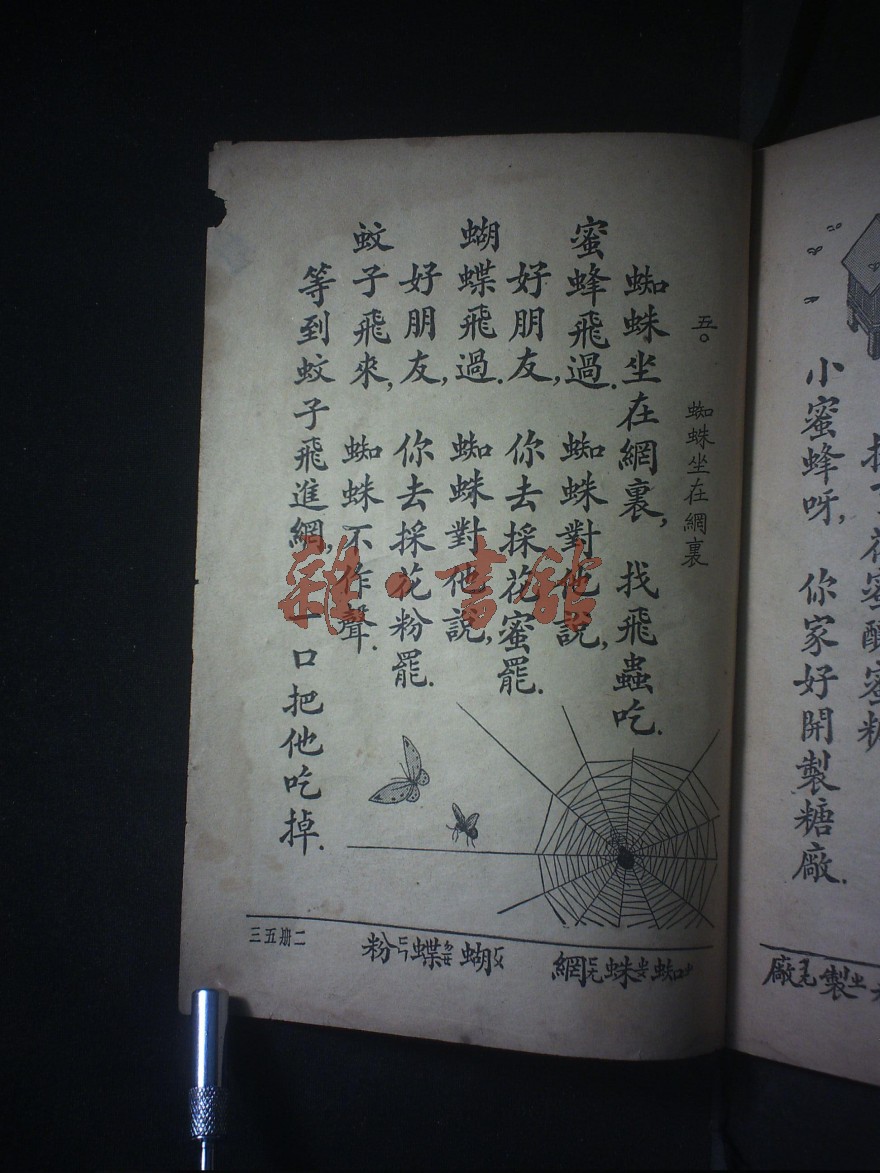 小蜜蜂呀，你家好開製糖廠．
廠製
五。　蜘蛛坐在網裏
蜘蛛坐在網裏，找飛蟲吃．
蜜蜂飛過．蜘蛛對他說，
好朋友，你去採花蜜罷．
蝴蝶飛過．蜘蛛對他說，
好朋友，你去採花粉罷．
蚊子飛來，蜘蛛不作聲．
等到蚊子飛進網，一口把他吃掉．
蜘蛛網
蝴蝶粉
二册五三
雜·書館